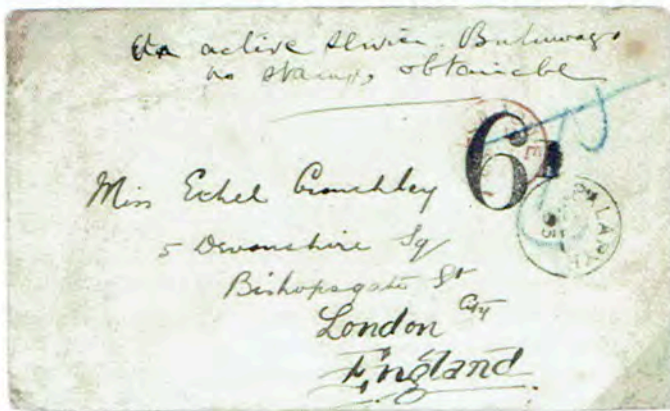 On active service. Buluwayo
no stamps obtainable
6d
Miss Ethel Crouchley
5 Devonshire Sq
Bishopsgate St
City
London
England